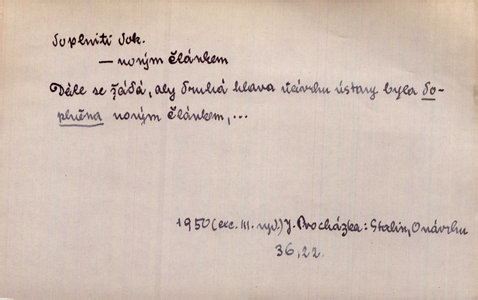 doplniti dok.
— novým článkem
Dále se žádá, aby druhá hlava návrhu ústavy byla do-
plněna novým článkem,...
1950 (exc. III. vyd.) J. Procházka: Stalin, O návrhu
36, 22.